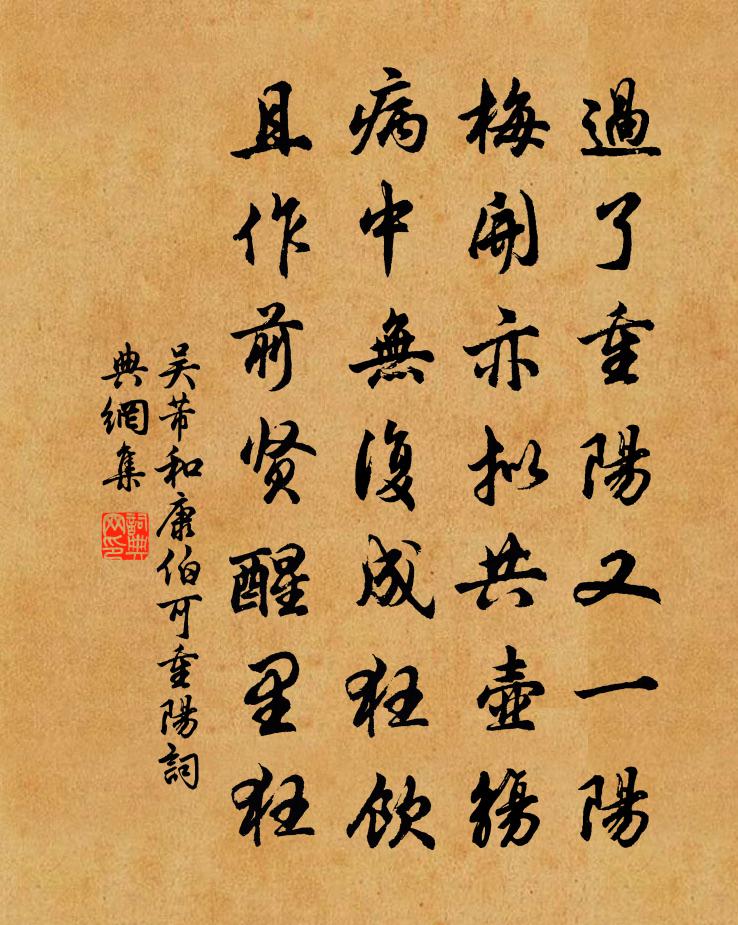 過了重陽又一陽
梅開亦拟共壺觴
病中無復成狂飲
且作前贤醒里狂
吴芾和康伯可重陽詞
典網集
詞典网印